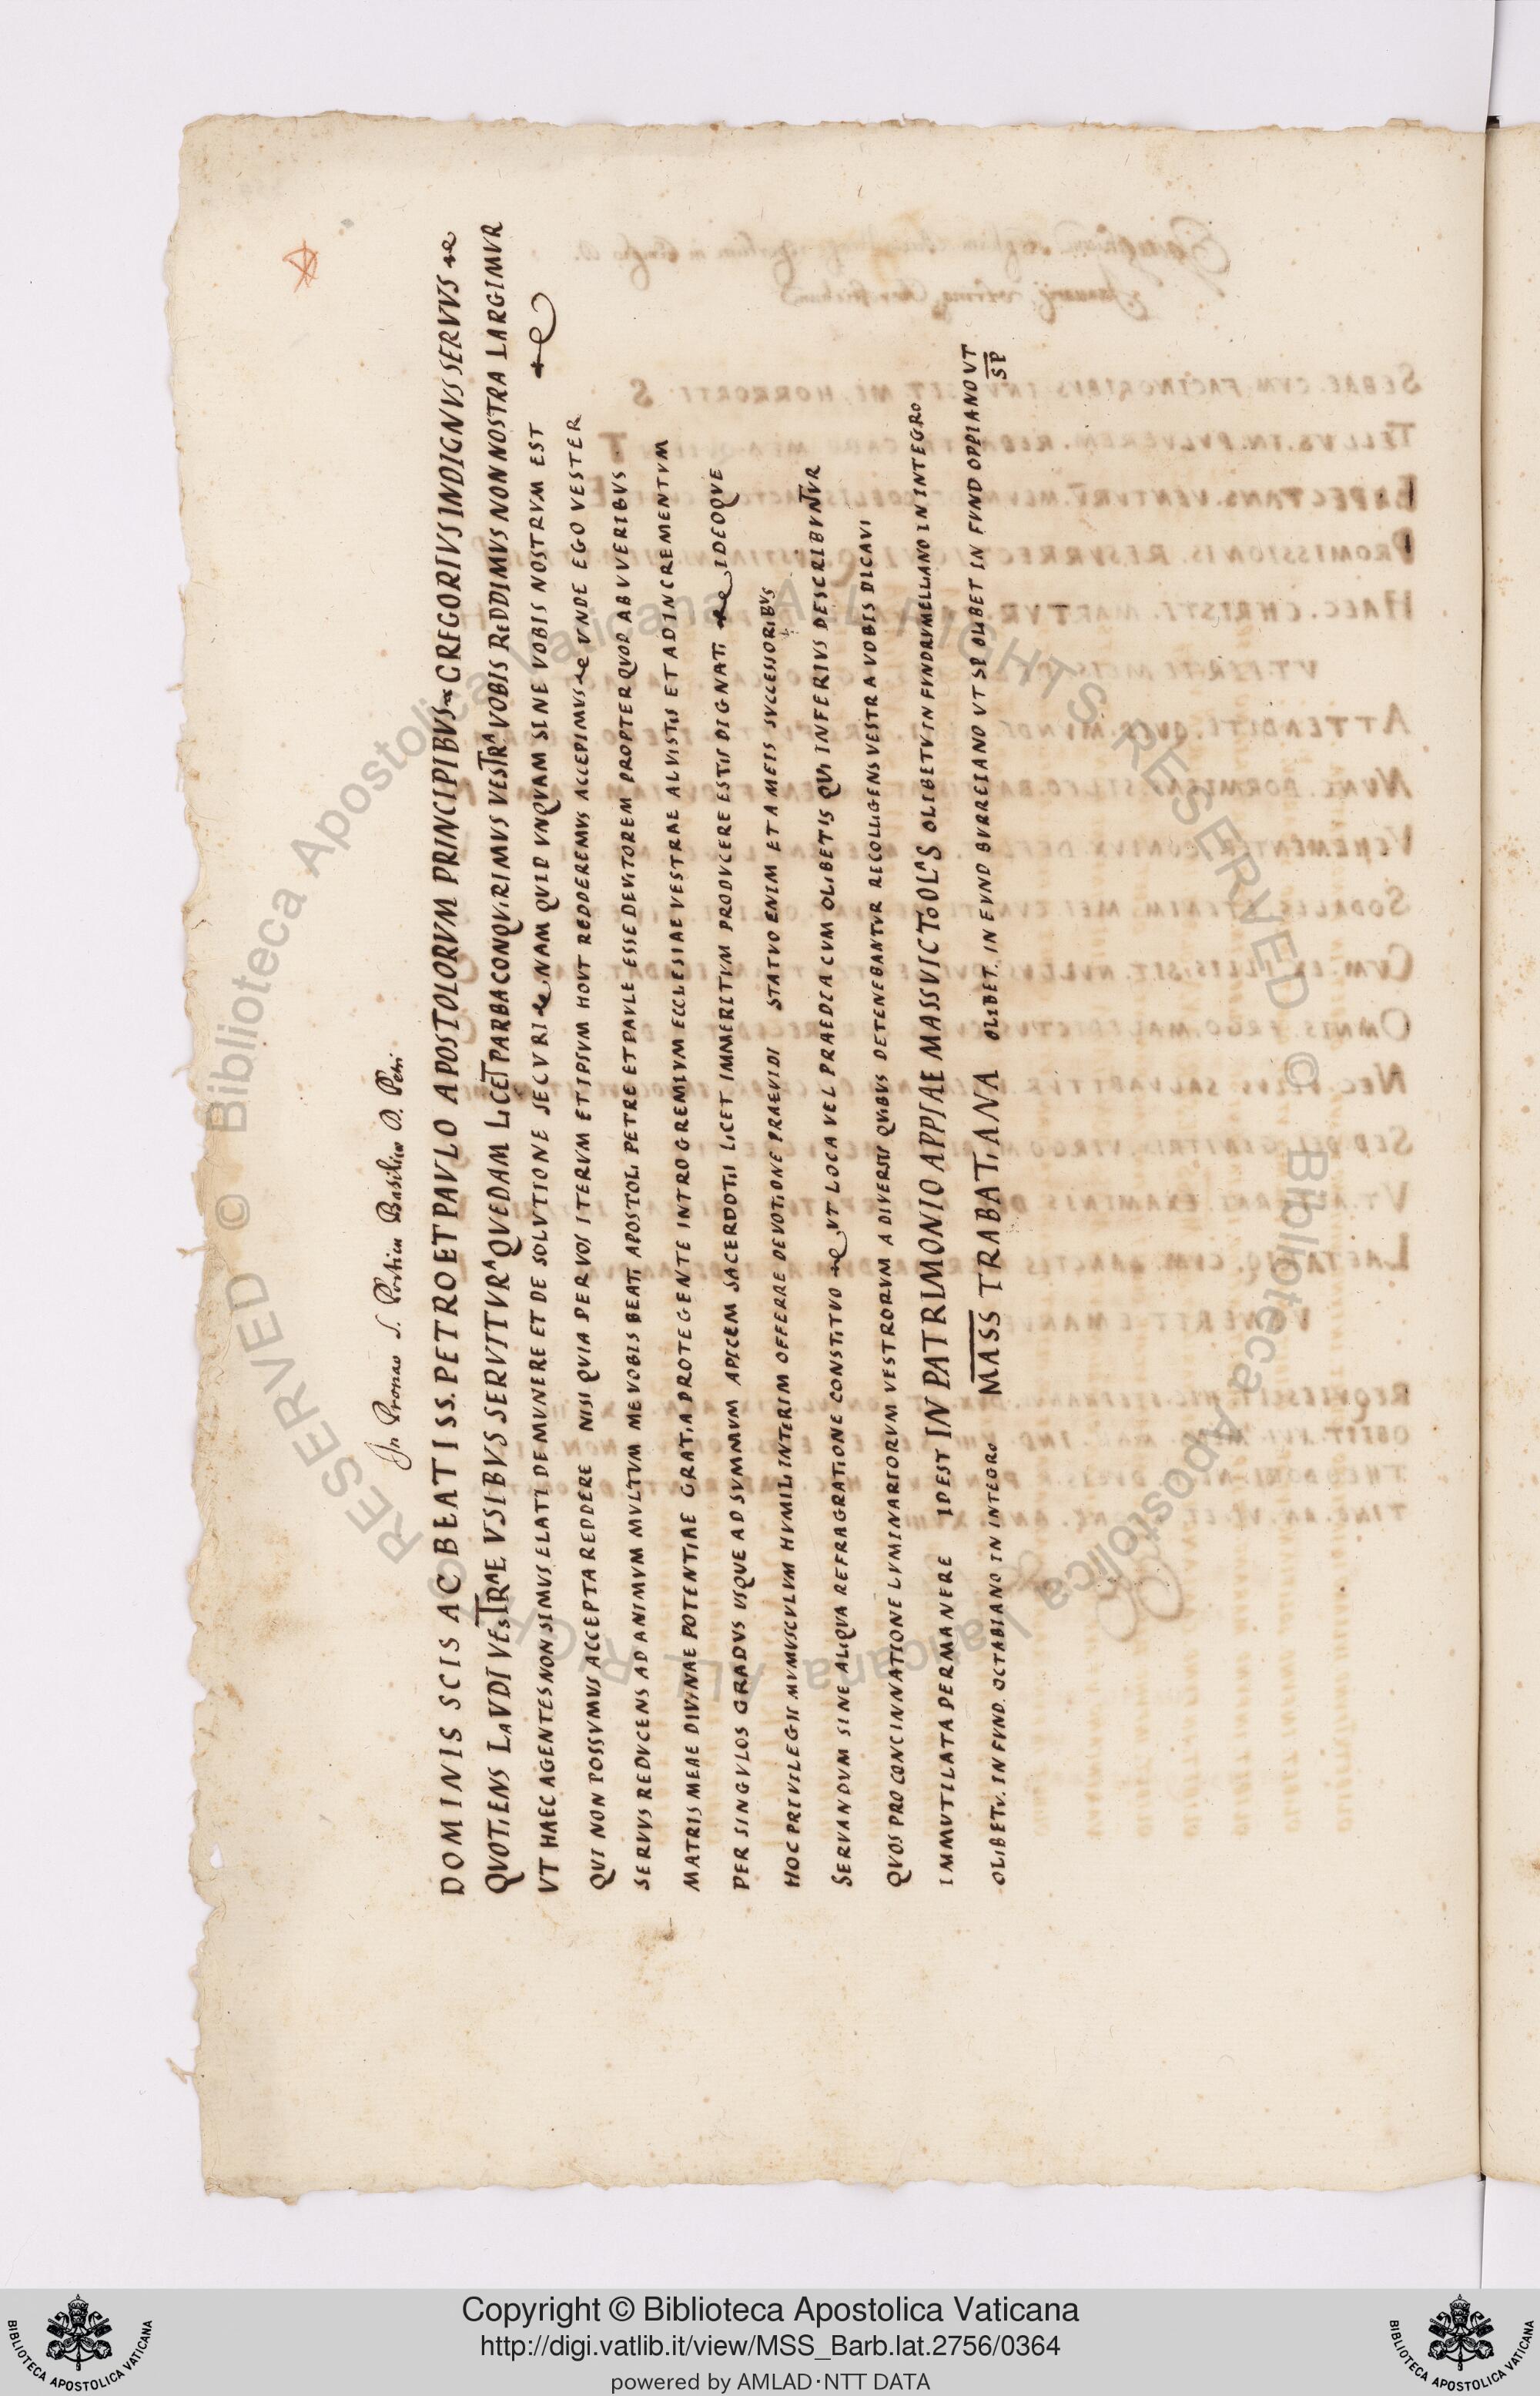 In Pronao S. Porticu Basilicae D. Petri
DOMINIS SCIS AC BEATISS. PETRO ET PAVLO APOSTOLORVM PRINCIPIBVS GREGORIVS INDIGNVS SERVVS
QVOTIENS LAVDI VESTRAE VSIBVS SERVITVRA QVEDAM LICET PARBA CONQVIRIMVS VESTRA VOBIS REDDIMVS NON NOSTRA LARGIMVR
VT HAEC AGENTES NON SIMVS ELATI DE MVNERE ET DE SOLVTIONE SECVRI NAM QVID VNQVAM SINE VOBIS NOSTRVM EST
QVI NON POSSVMVS ACCEPTA REDDERE NISI QVIA PER VOS ITERVM ET IPSVM HOVT REDDEREMVS ACCEPIMVS VNDE EGO VESTER
SERVVS REDVCENS AD ANIMVM MVLTVM ME VOBIS BEATI APOSTOLI PETRE ET PAVLE ESSE DEVITOREM PROPTER QVOD AB VVERIBVS
MATRIS MEAE DIVINAE POTENTIAE GRATIA PROTEGENTE INTRO GREMIVM ECCLESIAE VESTRAE ALVISTIS ET AD INCREMENTVM
PER SINGVLOS GRADVS VSQVE AD SVMMVM APICEM SACERDOTII LICET IMMERITVM PRODVCERE ESTIS DIGNATI IDEOQVE
HOC PRIVILEGII MVMVSCVLVM HVMILI INTERIM OFFERRE DEVOTIONE PRAEVIDI STATVO ENIM ET A MEIS SVCCESSORIBVS
SERVANDVM SINE ALIQVA REFRAGRATIONE CONSTITVO VT LOCA VEL PRAEDIA CVM OLIBETIS QVI INFERIVS DESCRIBVNTVR
QVOS PRO CONCINNATIONE LVMINARIORVM VESTRORVM A DIVERSIS QVIBVS DETENEBANTVR RECOLLIGENS VESTRA VOBIS DICAVI
IMMVTILATA PERMANERE IDEST IN PATRIMONIO APPIAE MASSVICTOOLAS OLIBETV IN FVNDRVMELLIANO IN INTEGRO
OLIBETV. IN FVND. OCTABIANO IN INTEGRO MASS TRABATIANA OLIBET. IN FVND BVRREIANO VT SP OLIBET IN FVND OPPIANO VT
SP
Copyright © Biblioteca Apostolica Vaticana
http://digi.vatlib.it/view/MSS_Barb.lat.2756/0364
powered by AMLAD·NTT DATA